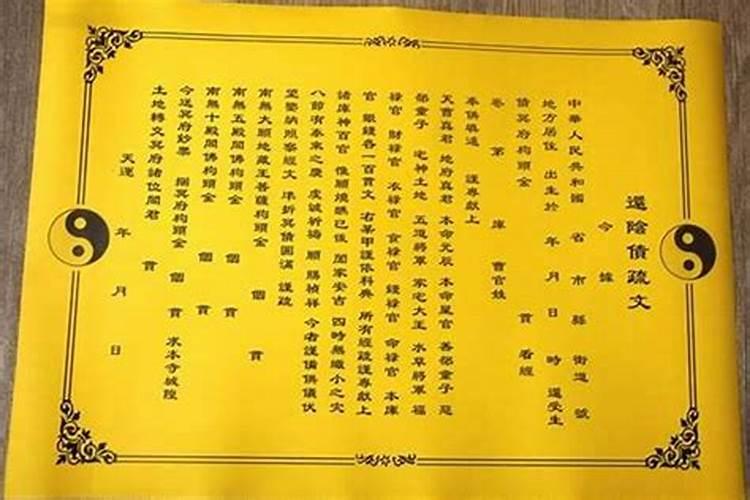 還陰債疏文
今據
中華人民共和國 省 市 縣 街道 號
地方居住 出生於 年 月 日 時 還受生
債冥府夠頭金 貫 看經
卷 第 庫 曹官姓
奉供填還 謹專獻上
天曹真君 地府真君 本命元辰 本命星官 善部童子 惡
部童子 宅神土地 五道將軍 家宅大王 水草將軍 福
祿官 財祿官 衣祿官 食祿官 錢祿官 命祿官 本庫
官 銀錢各一百貫文 右某甲謹依科典 所有經疏謹專獻上
諸庫神百官 惟願燒醮已後 閤家安吉 四時無纖小之災
八節有泰來之慶 虔誠祈禱 願賜禎祥 今者謹備供儀伏
望鑒納照察經文 準折冥債圓滿 謹疏
南無大願地藏王菩薩夠頭金 個 貫
南無五殿閻佛夠頭金 個 貫
南無十殿閻佛夠頭金 個 貫
今送冥府鈔票 捆冥府夠頭金 個 貫 求本寺城隍
土地轉交冥府諸位閻君 貫
天運 年 月 日